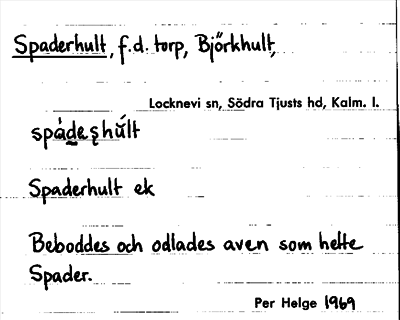 Spaderhult, f.d. torp, Björkhult,
Locknevi sn, Södra Tjusts hd, Kalm. l.
spàdeʂhúlt
Spaderhult ek
Beboddes och odlades aven som hette
Spader.
Per Helge 1969